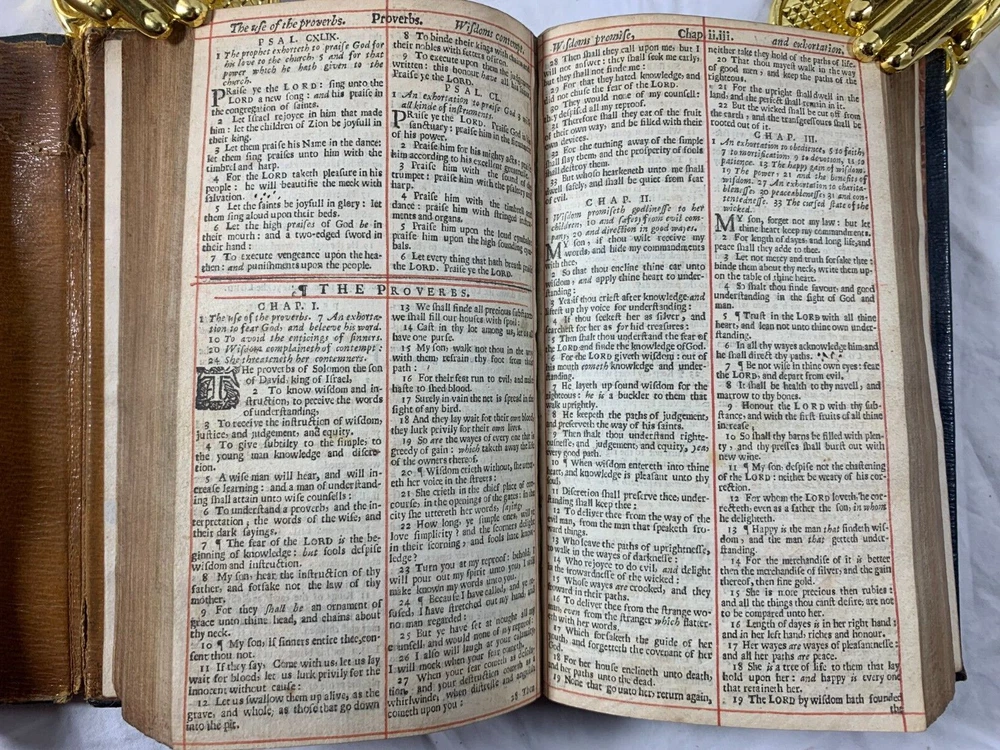 The use of the proverbs. Proverbs. Wisdoms contempt.
PSAL. CXLIX.
1 The prophet exhorteth to praise God for
his love to the church, 5 and for that
power which he hath given to the
church.
PRaise ye the LORD: sing unto the
LORD a new song: and his praise in
the congregation of saints.
2 Let Israel rejoyce in him that made
him: let the children of Zion be joyfull in
their king.
3 Let them praise his Name in the dance:
let them sing praises unto him with the
timbrel and harp.
4 For the LORD taketh pleasure in his
people: he will beautifie the meek with
salvation.
5 Let the saints be joyfull in glory: let
them sing aloud upon their beds.
6 Let the high praises of God be in
their mouth: and a two-edged sword in
their hand:
7 To execute vengeance upon the hea-
then: and punishments upon the people.
8 To binde their kings with chains
their nobles with fetters of iron.
9 To execute upon them the judgement
written: this honour have all his saints
Praise ye the LORD.
PSAL. CL.
1 An exhortation to praise God 3 with
all kinde of instruments.
PRaise ye the LORD. Praise God in his
sanctuary: praise him in the firmament
of his power.
2 Praise him for his mighty acts: praise
him according to his excellent greatnesse.
3 Praise him with the sound of the
trumpet: praise him with the psaltery and
harp.
4 Praise him with the timbrel and
dance: praise him with stringed instru-
ments and organs.
5 Praise him upon the loud cymbals:
praise him upon the high sounding cym-
bals.
6 Let every thing that hath breath praise
the LORD. Praise ye the LORD.
¶ THE PROVERBS.
CHAP. I.
1 The use of the proverbs. 7 An exhorta-
tion to fear God, and beleeve his word.
10 To avoid the enticings of sinners.
20 Wisdom complaineth of contempt:
24 She threateneth her contemners.
THe proverbs of Solomon the son
of David, king of Israel,
2 To know wisdom and in-
struction, to perceive the words
of understanding,
3 To receive the instruction of wisdom,
justice, and judgement, and equity.
4 To give subtilty to the simple, to
the young man knowledge and discre-
tion.
5 A wise man will hear, and will in-
crease learning: and a man of understand-
ing shall attain unto wise counsells:
6 To understand a proverb, and the in-
terpretation; the words of the wise, and
their dark sayings.
7 ¶ The fear of the LORD is the be-
ginning of knowledge: but fools despise
wisdom and instruction.
8 My son, hear the instruction of thy
father, and forsake not the law of thy
mother.
9 For they shall be an ornament of
grace unto thine head, and chains about
thy neck.
10 ¶ My son, if sinners entice thee, con-
sent thou not.
11 If they say, Come with us, let us lay
wait for bloud, let us lurk privily for the
innocent without cause:
12 Let us swallow them up alive, as the
grave, and whole, as those that go down
into the pit.
13 We shall finde all precious substance,
we shall fill our houses with spoil:
14 Cast in thy lot among us, let us all
have one purse.
15 My son, walk not thou in the way
with them; refrain thy foot from their
path:
16 For their feet run to evil, and make
haste to shed bloud.
17 Surely in vain the net is spread in the
sight of any bird.
18 And they lay wait for their own bloud,
they lurk privily for their own lives.
19 So are the wayes of every one that is
greedy of gain: which taketh away the life
of the owners thereof.
20 ¶ Wisdom crieth without, she utter-
eth her voice in the streets:
21 She crieth in the chief place of con-
course, in the openings of the gates: in the
city she uttereth her words, saying,
22 How long, ye simple ones, will ye
love simplicity? and the scorners delight
in their scorning, and fools hate know-
ledge?
23 Turn you at my reproof: behold, I
will pour out my spirit unto you, I will
make known my words unto you.
24 ¶ Because I have called, and ye re-
fused, I have stretched out my hand, and
no man regarded:
25 But ye have set at nought all my
counsell, and would none of my reproof:
26 I also will laugh at your calamity,
I will mock when your fear cometh.
27 When your fear cometh as desola-
tion, and your destruction cometh as a
whirlwinde, when distresse and anguish
cometh upon you:
28 Then
Wisdoms promise, Chap. ii. iii. and exhortation.
28 Then shall they call upon me, but I
will not answer: they shall seek me early,
but they shall not finde me:
29 For that they hated knowledge, and
did not chuse the fear of the LORD.
30 They would none of my counsell:
they despised all my reproof.
31 Therefore shall they eat of the fruit
of their own way, and be filled with their
own devices.
32 For the turning away of the simple
shall slay them, and the prosperity of fools
shall destroy them.
33 But whoso hearkeneth unto me shall
dwell safely, and shall be quiet from fear
of evil.
CHAP. II.
1 Wisdom promiseth godlinesse to her
children, 10 and safety from evil com-
pany, 20 and direction in good wayes.
MY son, if thou wilt receive my
words, and hide my commandments
with thee;
2 So that thou encline thine ear unto
wisdom, and apply thine heart to under-
standing:
3 Yea if thou criest after knowledge, and
liftest up thy voice for understanding:
4 If thou seekest her as silver, and
searchest for her as for hid treasures:
5 Then shalt thou understand the fear of
the LORD and finde the knowledge of God.
6 For the LORD giveth wisdom: out of
his mouth cometh knowledge and under-
standing.
7 He layeth up sound wisdom for the
righteous: he is a buckler to them that
walk uprightly.
8 He keepeth the paths of judgement,
and preserveth the way of his saints.
9 Then shalt thou understand righte-
ousnesse, and judgement, and equity, yea,
every good path.
10 ¶ When wisdom entereth into thine
heart, and knowledge is pleasant unto thy
soul;
11 Discretion shall preserve thee, under-
standing shall keep thee:
12 To deliver thee from the way of the
evil man, from the man that speaketh fro-
ward things.
13 Who leave the paths of uprightnesse,
to walk in the wayes of darknesse;
14 Who rejoyce to do evil, and delight
in the frowardnesse of the wicked:
15 Whose wayes are crooked, and they
froward in their paths.
16 To deliver thee from the strange wo-
man, even from the stranger which flatter-
eth with her words.
17 Which forsaketh the guide of her
youth, and forgetteth the covenant of her
God.
18 For her house enclineth unto death,
and her paths unto the dead.
19 None that go unto her return again,
neither take they hold of the paths of life.
20 That thou mayest walk in the way
of good men, and keep the paths of the
righteous.
21 For the upright shall dwell in the
land, and the perfect shall remain in it.
22 But the wicked shall be cut off from
the earth, and the transgressours shall be
rooted out of it.
CHAP. III.
1 An exhortation to obedience, 5 to faith,
7 to mortification, 9 to devotion, 11 to
patience. 13 The happy gain of wisdom.
19 The power, 21 and the benefits of
wisdom. 27 An exhortation to charita-
blenesse, 30 peaceablenesse, 31 and con-
tentednesse. 33 The cursed state of the
wicked.
MY son, forget not my law: but let
thine heart keep my commandments.
2 For length of dayes, and long life, and
peace shall they adde to thee.
3 Let not mercy and truth forsake thee:
binde them about thy neck, write them up-
on the table of thine heart.
4 So shalt thou finde favour, and good
understanding in the sight of God and
man.
5 ¶ Trust in the LORD with all thine
heart, and lean not unto thine own under-
standing.
6 In all thy wayes acknowledge him, and
he shall direct thy paths.
7 ¶ Be not wise in thine own eyes: fear
the LORD, and depart from evil.
8 It shall be health to thy navell, and
marrow to thy bones.
9 Honour the LORD with thy sub-
stance, and with the first fruits of all thine
increase;
10 So shall thy barns be filled with plen-
ty, and thy presses shall burst out with
new wine.
11 ¶ My son, despise not the chastening
of the LORD: neither be weary of his cor-
rection.
12 For whom the LORD loveth, he cor-
recteth, even as a father the son, in whom
he delighteth.
13 ¶ Happy is the man that findeth wis-
dom, and the man that getteth under-
standing.
14 For the merchandise of it is better
then the merchandise of silver, and the gain
thereof, then fine gold.
15 She is more precious then rubies:
and all the things thou canst desire, are not
to be compared unto her.
16 Length of dayes is in her right hand:
and in her left hand, riches and honour.
17 Her wayes are wayes of pleasantnesse:
and all her paths are peace.
18 She is a tree of life to them that lay
hold upon her: and happy is every one
that retaineth her.
19 The LORD by wisdom hath founded
the